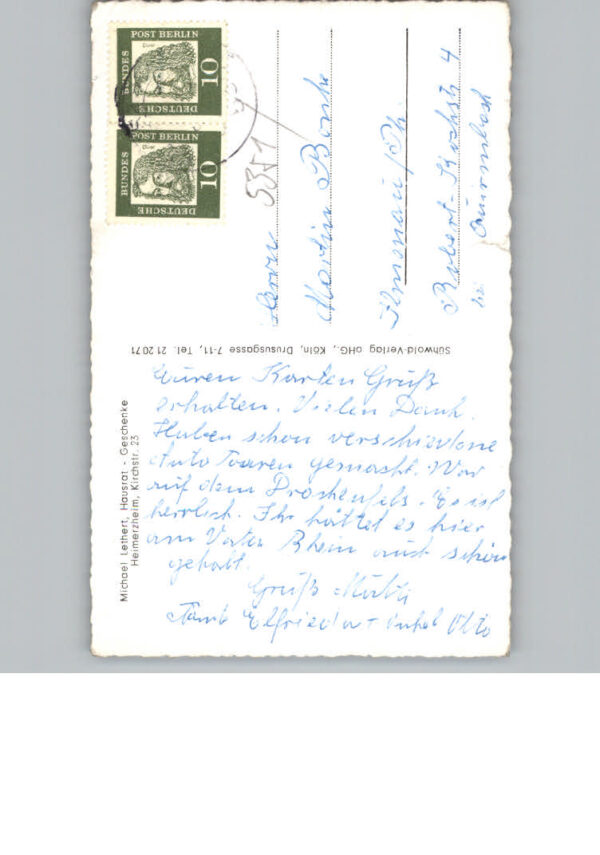 DEUTSCHE
BUNDES
POST BERLIN
10
Dürer
DEUTSCHE
BUNDES
POST BERLIN
10
Dürer
5351
Herrn
Martin
Robert-Kochstr 4
bei
Sühwold-Verlag oHG., Köln, Drususgasse 7-11, Tel. 21 20 71
Michael Lethert, Hausrat - Geschenke
Heimerzheim, Kirchstr. 23
Euren Karten Gruß
erhalten. Vielen Dank.
Haben schon verschiedene
Auto Touren gemacht. War
auf dem Drachenfels. Es ist
herrlich. Ihr hättet es hier
am Rhein auch schön
gehabt.
Gruß
Tante Elfriede + Onkel Otto